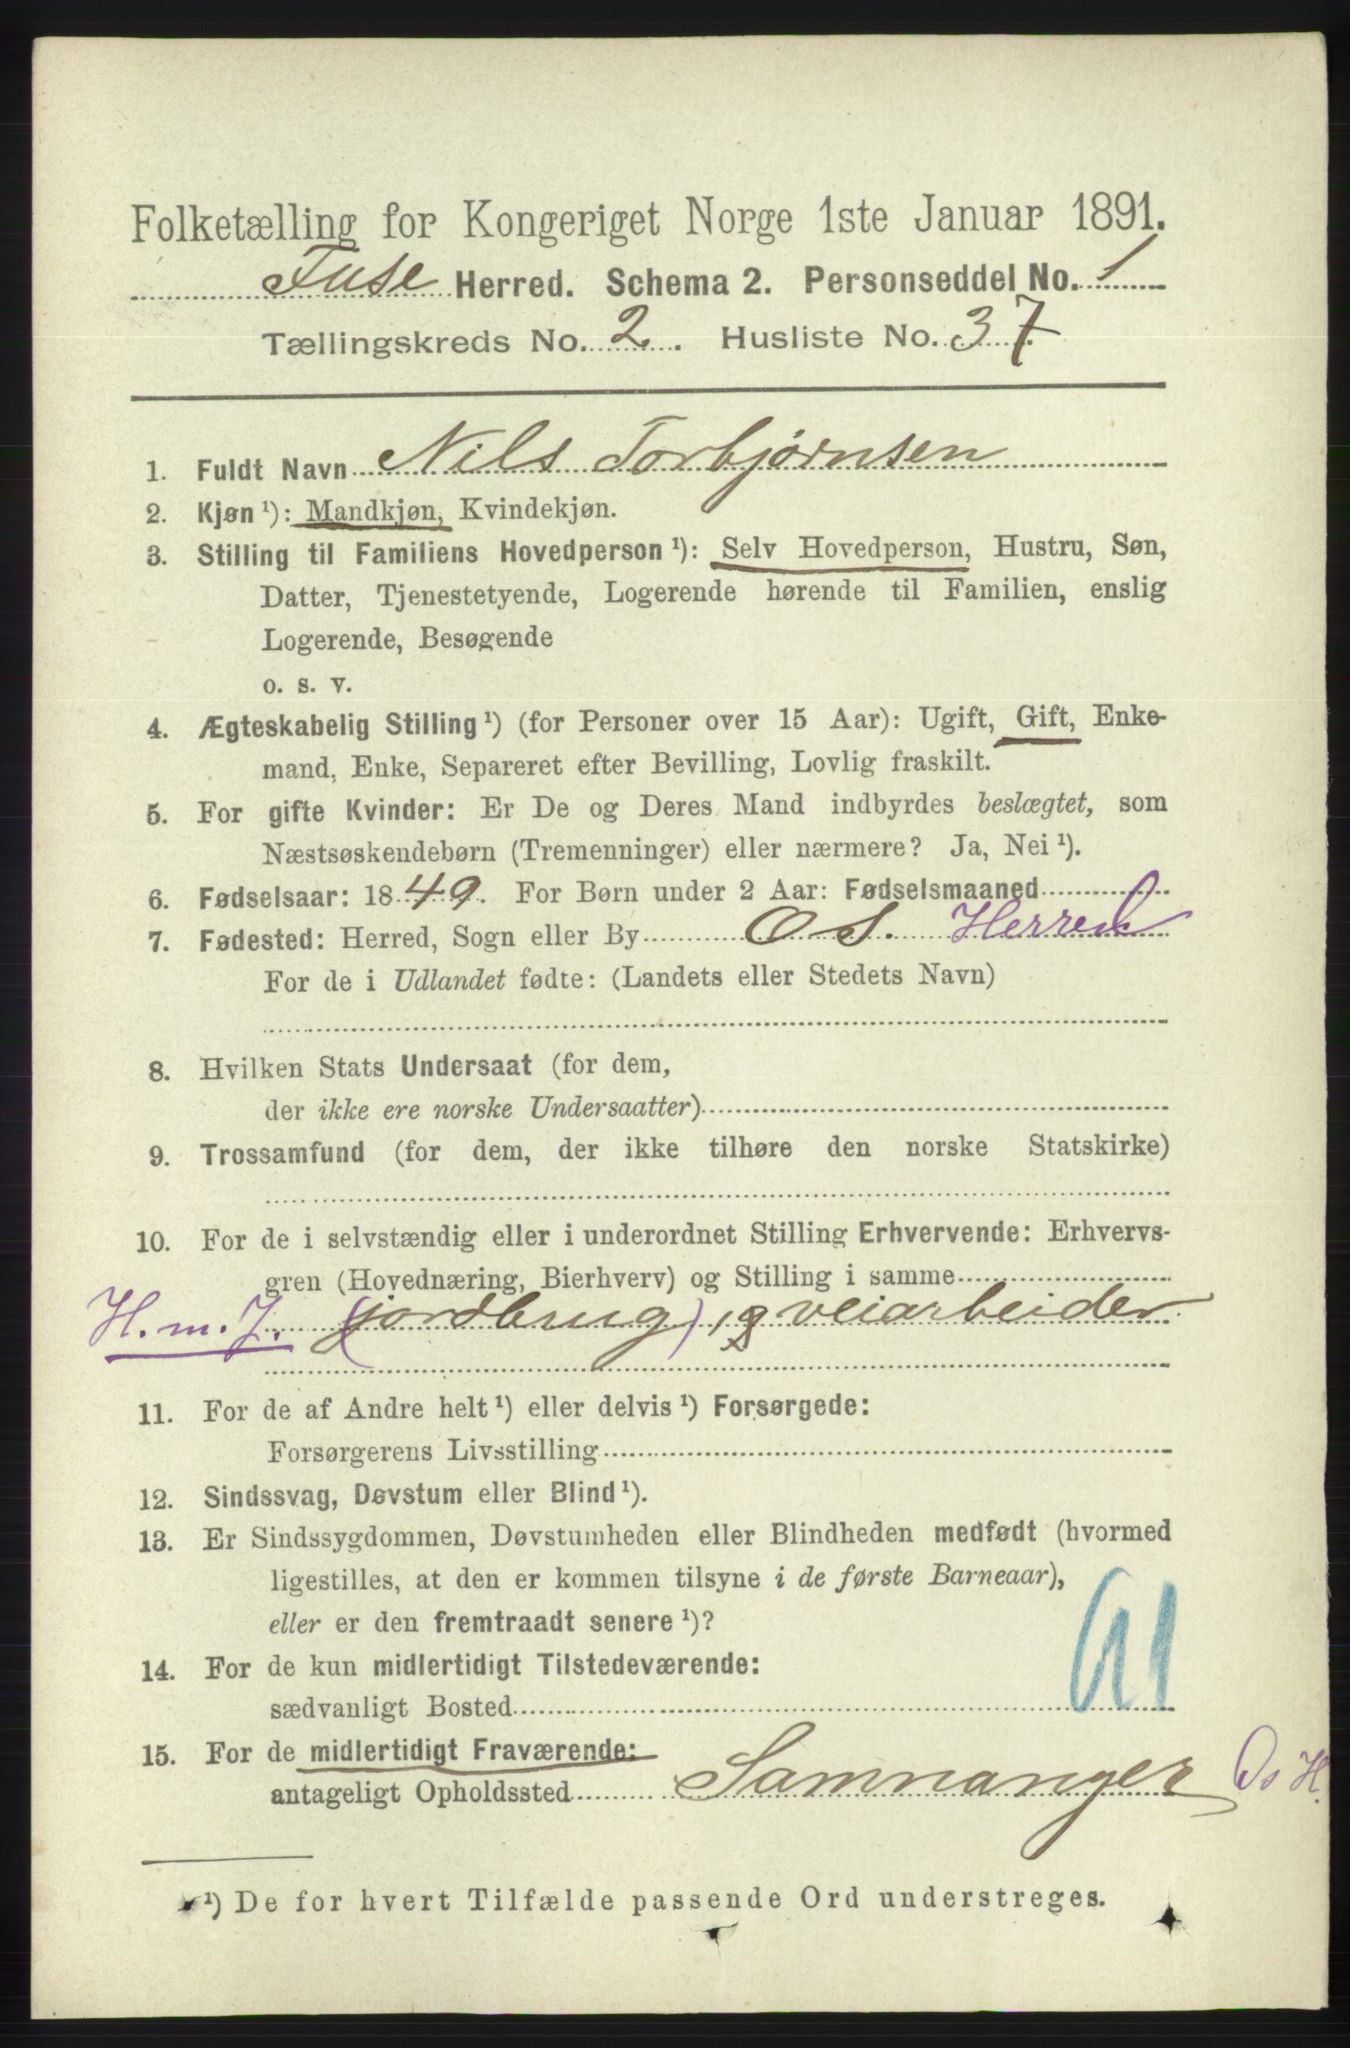 Folketælling for Kongeriget Norge 1ste Januar 1891.
Fuse Herred. Schema 2. Personseddel No. 1
Tællingskreds No. 2. Husliste No. 37
1. Fuldt Navn Nils Torbjørnsen
2. Kjøn ¹): Mandkjøn, Kvindekjøn.
3. Stilling til Familiens Hovedperson ¹): Selv Hovedperson, Hustru, Søn,
Datter, Tjenestetyende, Logerende hørende til Familien, enslig
Logerende, Besøgende
o. s. v.
4. Ægteskabelig Stilling ¹) (for Personer over 15 Aar): Ugift, Gift, Enke-
mand, Enke, Separeret efter Bevilling, Lovlig fraskilt.
5. For gifte Kvinder: Er De og Deres Mand indbyrdes beslægtet, som
Næstsøskendebørn (Tremenninger) eller nærmere? Ja, Nei ¹).
6. Fødselsaar: 1849. For Børn under 2 Aar: Fødselsmaaned
7. Fødested: Herred, Sogn eller By Os. Herred
For de i Udlandet fødte: (Landets eller Stedets Navn)
8. Hvilken Stats Undersaat (for dem,
der ikke ere norske Undersaatter)
9. Trossamfund (for dem, der ikke tilhøre den norske Statskirke)
10. For de i selvstændig eller i underordnet Stilling Erhvervende: Erhvervs-
gren (Hovednæring, Bierhverv) og Stilling i samme
H. m. J. (jordbrug), veiarbeider
11. For de af Andre helt ¹) eller delvis ¹) Forsørgede:
Forsørgerens Livsstilling
12. Sindssvag, Døvstum eller Blind ¹).
13. Er Sindssygdommen, Døvstumheden eller Blindheden medfødt (hvormed
ligestilles, at den er kommen tilsyne i de første Barneaar),
eller er den fremtraadt senere ¹)?
14. For de kun midlertidigt Tilstedeværende:
sædvanligt Bosted
15. For de midlertidigt Fraværende:
antageligt Opholdssted Samnanger Os H.
¹) De for hvert Tilfælde passende Ord understreges.